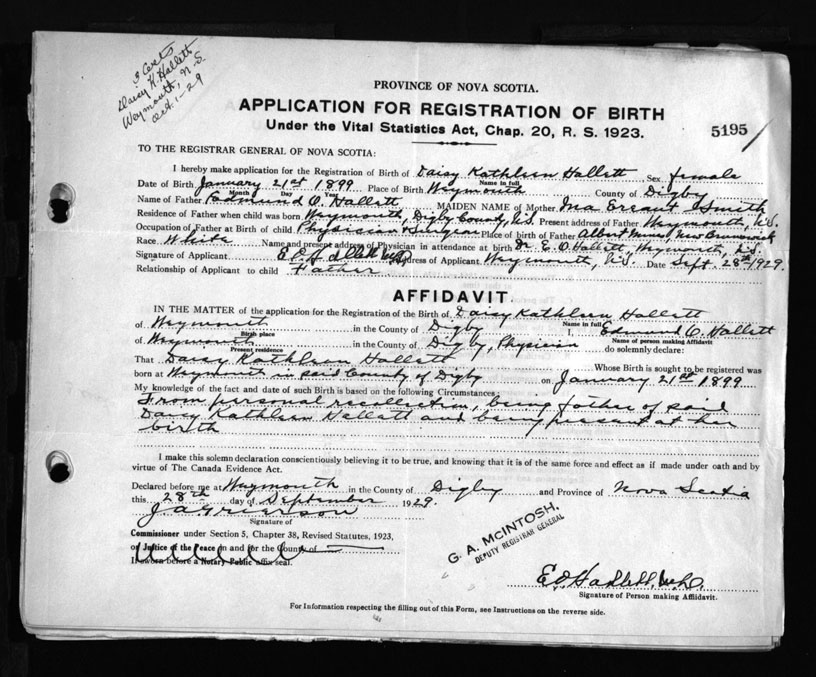 3 Certs
Daisy K. Hallett
Weymouth, N.S.
Oct. 1-29
PROVINCE OF NOVA SCOTIA.
APPLICATION FOR REGISTRATION OF BIRTH
Under the Vital Statistics Act, Chap. 20, R. S. 1923.
5195
TO THE REGISTRAR GENERAL OF NOVA SCOTIA:
I hereby make application for the Registration of Birth of Daisy Kathleen Hallett Sex female
Name in full
Date of Birth January 21st 1899 Place of Birth Weymouth County of Digby
Month Day Year
Name of Father Edmund O. Hallett MAIDEN NAME of Mother Ina Smith
Residence of Father when child was born Weymouth, Digby County, N.S. Present address of Father Weymouth, N.S.
Occupation of Father at Birth of child Physician & Surgeon Place of birth of Father Albert New Brunswick
Race White Name and present address of Physician in attendance at birth Dr. E. O. Hallett, Weymouth, N.S.
Signature of Applicant E O Hallett M.D. Address of Applicant Weymouth, N.S. Date Sept. 28th 1929.
Relationship of Applicant to child Father
AFFIDAVIT.
IN THE MATTER of the application for the Registration of the Birth of Daisy Kathleen Hallett
Name in full
of Weymouth in the County of Digby I, Edmund O. Hallett
Birth place Name of person making Affidavit
of Weymouth in the County of Digby, Physician do solemnly declare:
Present residence
That Daisy Kathleen Hallett Whose Birth is sought to be registered was
born at Weymouth in said County of Digby on January 21st 1899
My knowledge of the fact and date of such Birth is based on the following Circumstances
From personal recollection, being father of said
Daisy Kathleen Hallett and being present at her
birth
I make this solemn declaration conscientiously believing it to be true, and knowing that it is of the same force and effect as if made under oath and by
virtue of The Canada Evidence Act.
Declared before me at Weymouth in the County of Digby and Province of Nova Scotia
this 28th day of September 1929.
J. A. Grierson
Signature of
Commissioner under Section 5, Chapter 38, Revised Statutes, 1923,
or Justice of the Peace in and for the County of
If sworn before a Notary Public affix seal.
G. A. McINTOSH,
DEPUTY REGISTRAR GENERAL
E O Hallett, M.D.
Signature of Person making Affidavit.
For Information respecting the filling out of this Form, see Instructions on the reverse side.